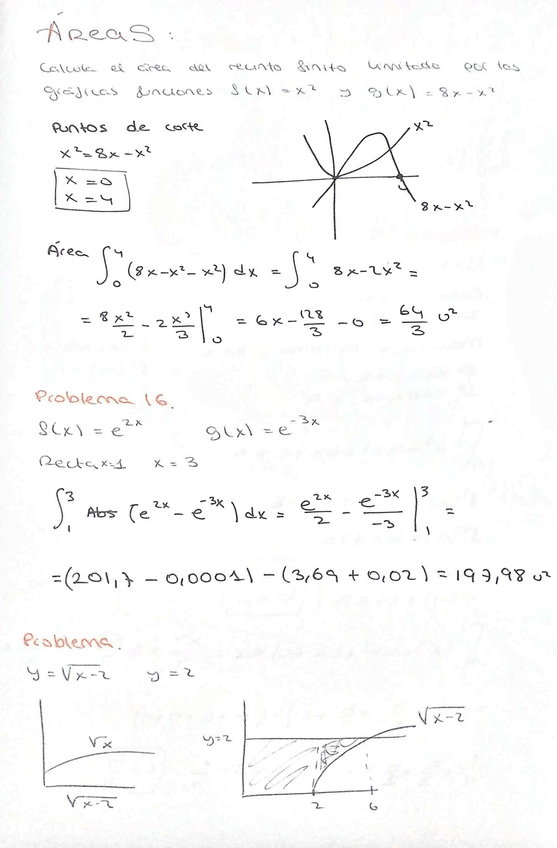 Áreas:
Calcula el área del recinto finito limitado por las
gráficas funciones f(x) = x² y g(x) = 8x - x²
Puntos de corte
x² = 8x - x²
x = 0
x = 4
x²
8x - x²
Área ∫₀⁴ (8x - x² - x²) dx = ∫₀⁴ 8x - 2x² =
= 8 x²/2 - 2 x³/3 |₀⁴ = 6x - 128/3 - 0 = 64/3 u²
Problema 16.
f(x) = e^(2x) g(x) = e^(-3x)
Recta x=1 x = 3
∫₁³ Abs (e^(2x) - e^(-3x)) dx = e^(2x)/2 - e^(-3x)/-3 |₁³ =
= (201,7 - 0,0001) - (3,69 + 0,02) = 197,98 u²
Problema.
y = √x-2 y = 2
√x
√x-2
y=2
√x-2
2 6